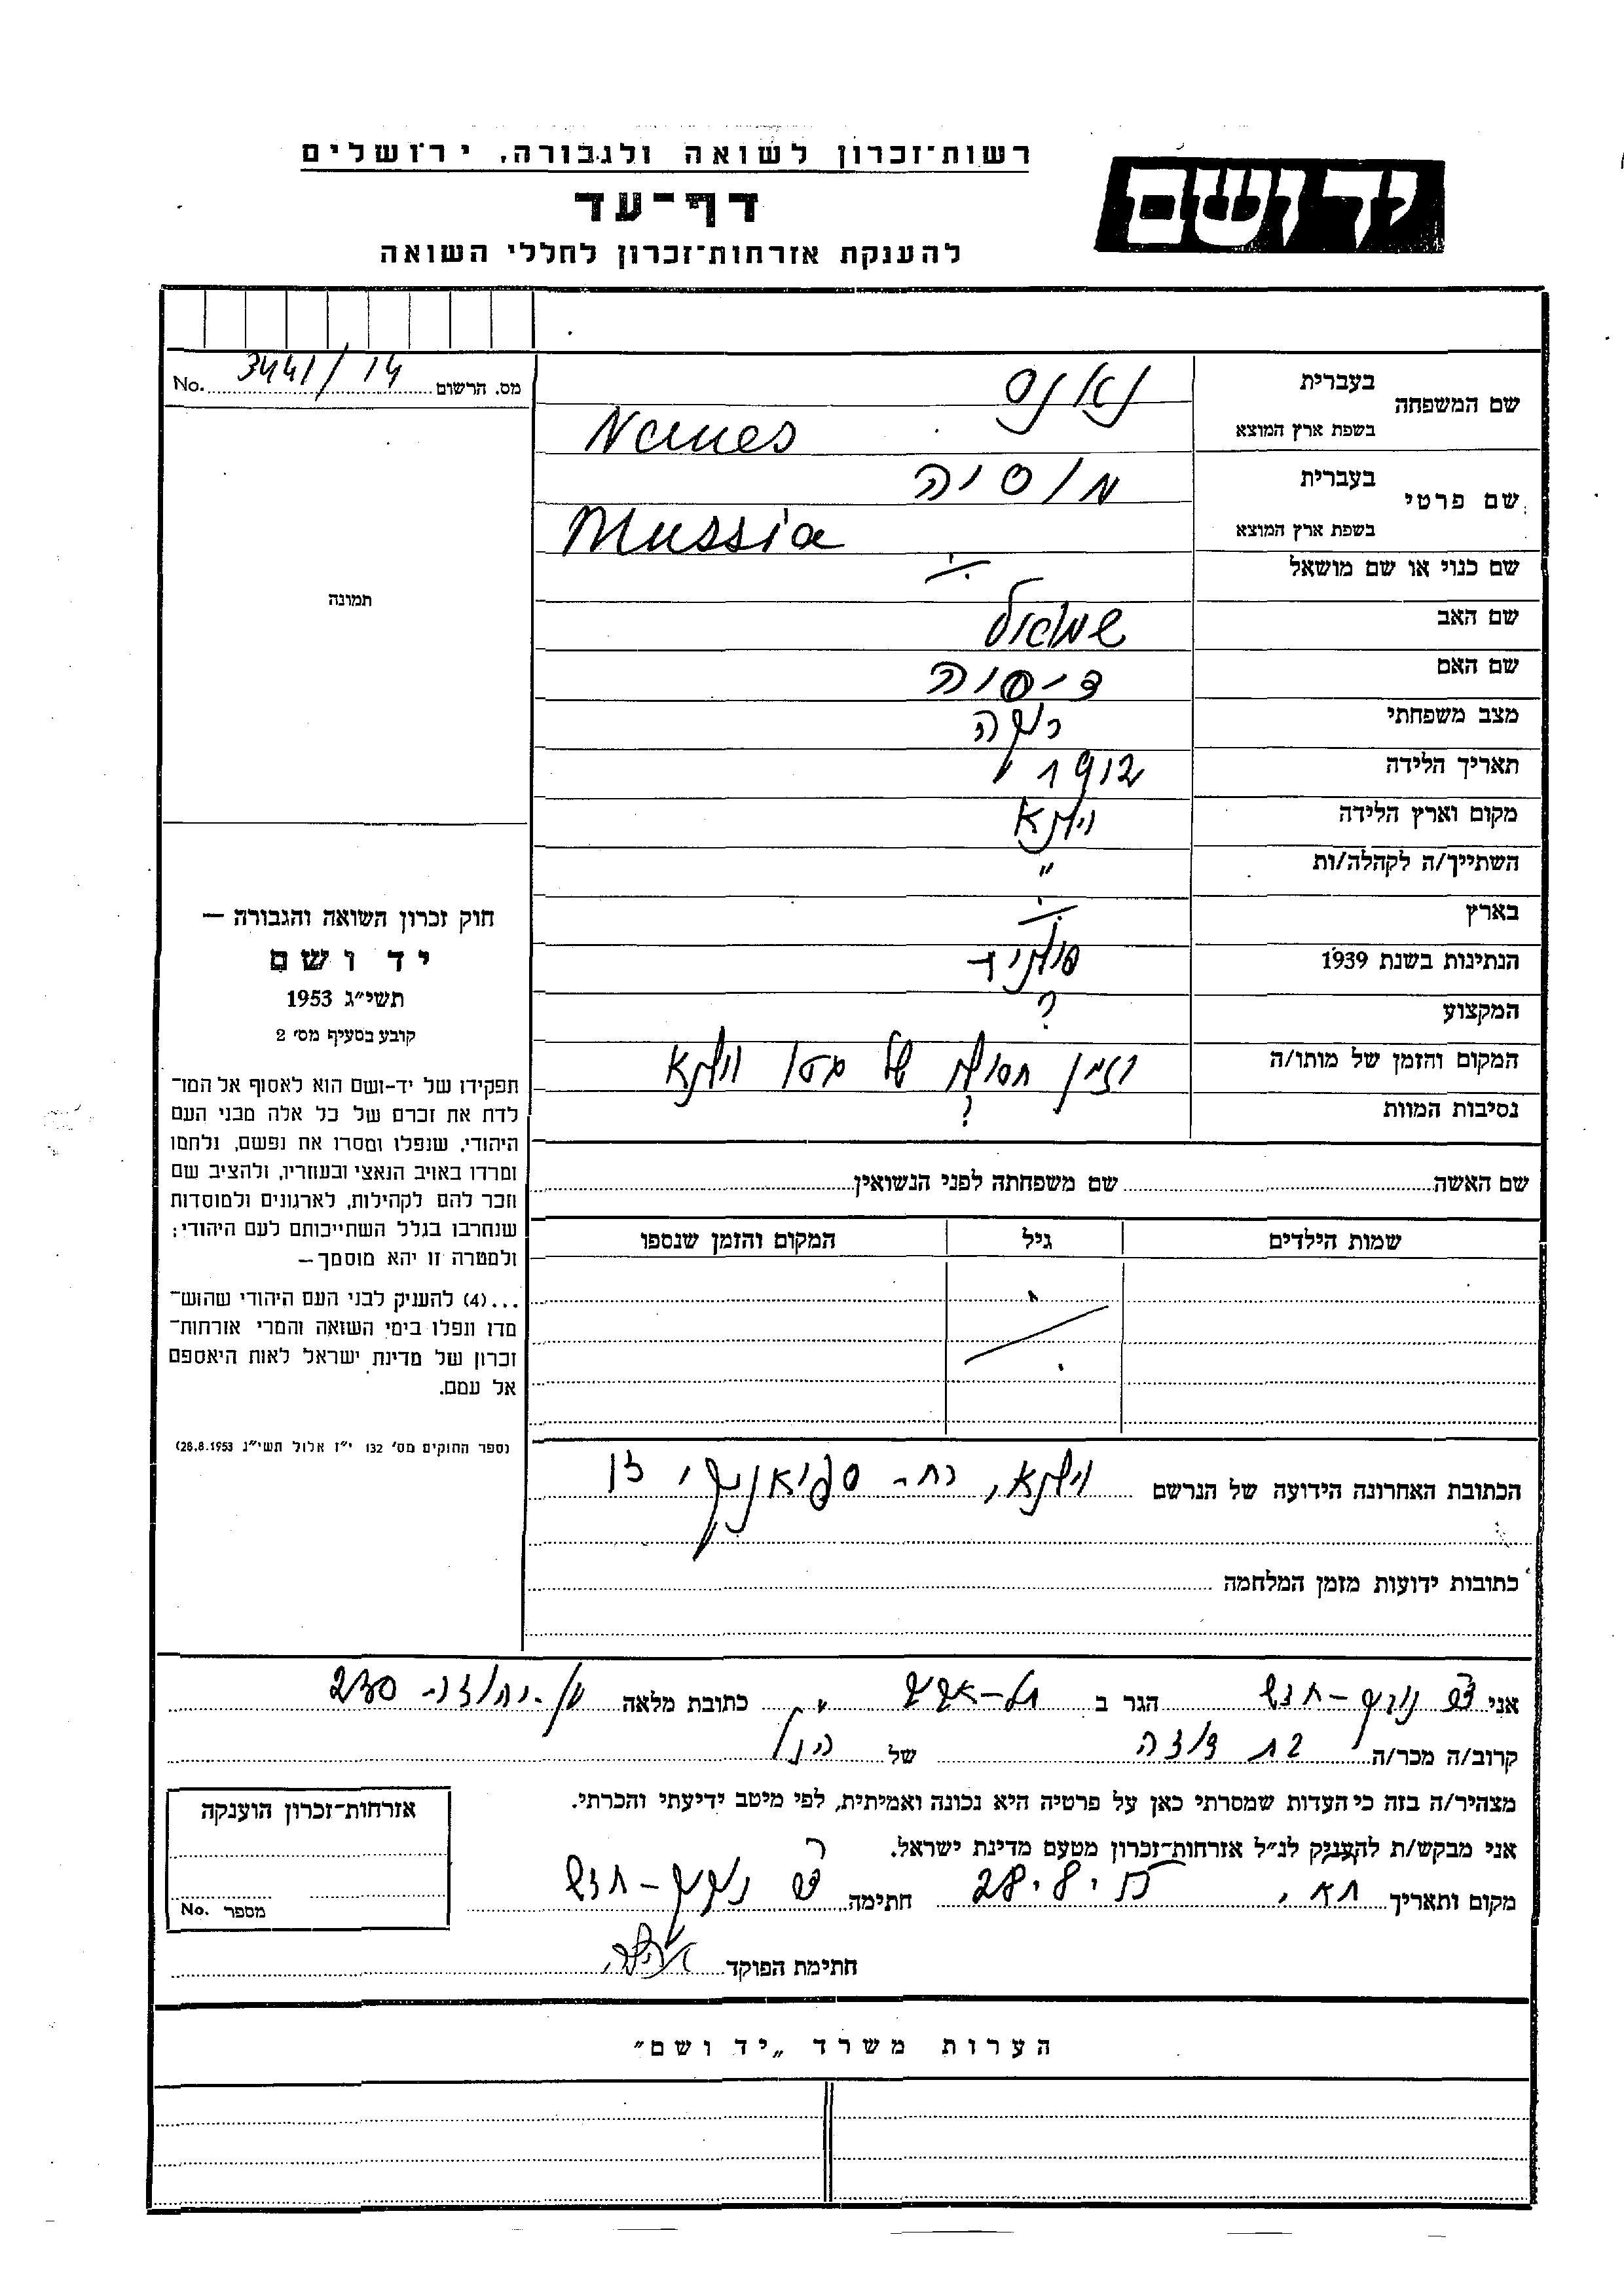 רשות־זכרון לשואה ולגבורה, ירושלים
יד ושם
דף־עד
להענקת אזרחות־זכרון לחללי השואה
מס. הרשום 3441/14 No.
שם המשפחה
בעברית נאנס
בשפת ארץ המוצא Nanes
שם פרטי
בעברית מוסיה
בשפת ארץ המוצא Mussia
שם כנוי או שם מושאל ./.
שם האב שמואל
שם האם
מצב משפחתי רווקה
תאריך הלידה 1912
מקום וארץ הלידה וילנא
השתייך/ה לקהלה/ות "
בארץ ./.
הנתינות בשנת 1939 פולנית
המקצוע ?
המקום והזמן של מותו/ה בזמן חסול של גטו וילנא
נסיבות המוות ?
תמונה
חוק זכרון השואה והגבורה —
יד ושם
תשי״ג 1953
קובע בסעיף מס׳ 2
תפקידו של יד־ושם הוא לאסוף אל המו־
לדת את זכרם של כל אלה מבני העם
היהודי, שנפלו ומסרו את נפשם, נלחמו
ומרדו באויב הנאצי ובעוזריו, ולהציב שם
וזכר להם לקהילות, לארגונים ולמוסדות
שנחרבו בגלל השתייכותם לעם היהודי;
ולמטרה זו יהא מוסמך —
...(4) להעניק לבני העם היהודי שהוש־
מדו ונפלו בימי השואה והמרי אזרחות־
זכרון של מדינת ישראל לאות היאספם
אל עמם.
(ספר החוקים מס׳ 132 י״ז אלול תשי״ג 28.8.1953)
שם האשה שם משפחתה לפני הנשואין
שמות הילדים גיל המקום והזמן שנספו
./.
הכתובת האחרונה הידועה של הנרשם וילנא, רח׳
כתובות ידועות מזמן המלחמה
אני הגר ב תל־אביב כתובת מלאה
קרוב/ה מכר/ה בת דודה של הנ״ל
מצהיר/ה בזה כי העדות שמסרתי כאן על פרטיה היא נכונה ואמיתית, לפי מיטב ידיעתי והכרתי.
אני מבקש/ת להעניק לנ״ל אזרחות־זכרון מטעם מדינת ישראל.
מקום ותאריך ת״א, חתימה
חתימת הפוקד
אזרחות־זכרון הוענקה
מספר No.
הערות משרד „יד ושם״